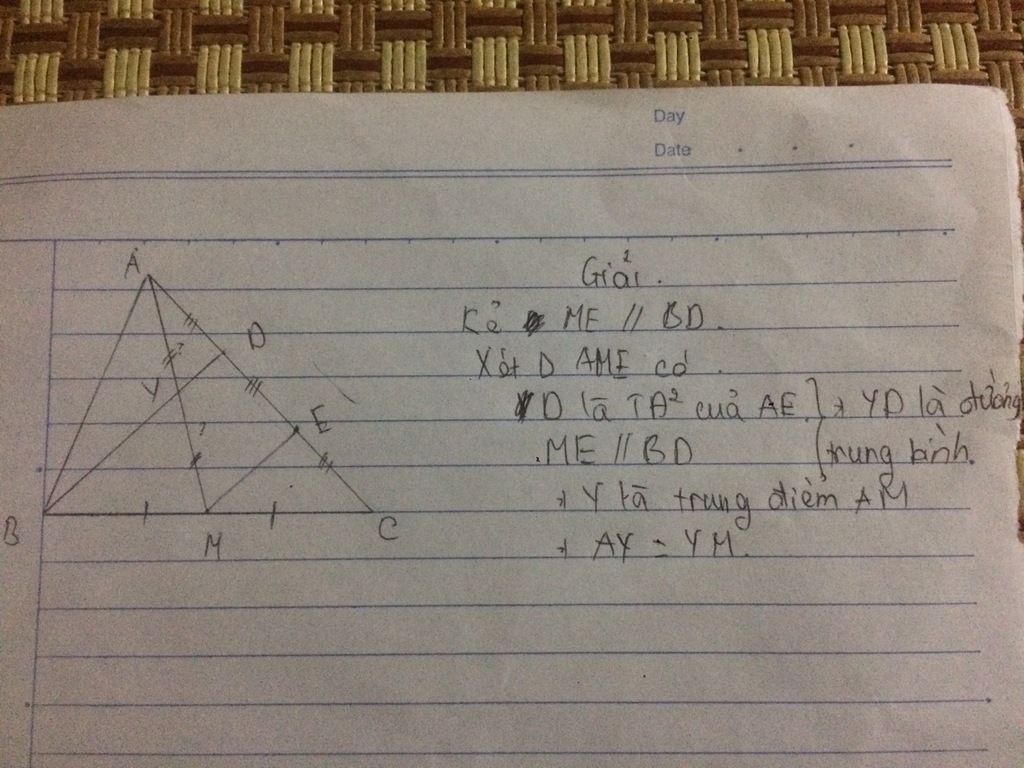 Day
Date
A
D
Y
E
B
M
C
Giải.
Kẻ ME // BD.
Xét D AME có
D là TĐ² cuả AE } → YD là đường
.ME // BD trung bình.
→ Y là trung điểm AM
→ AY = YM.